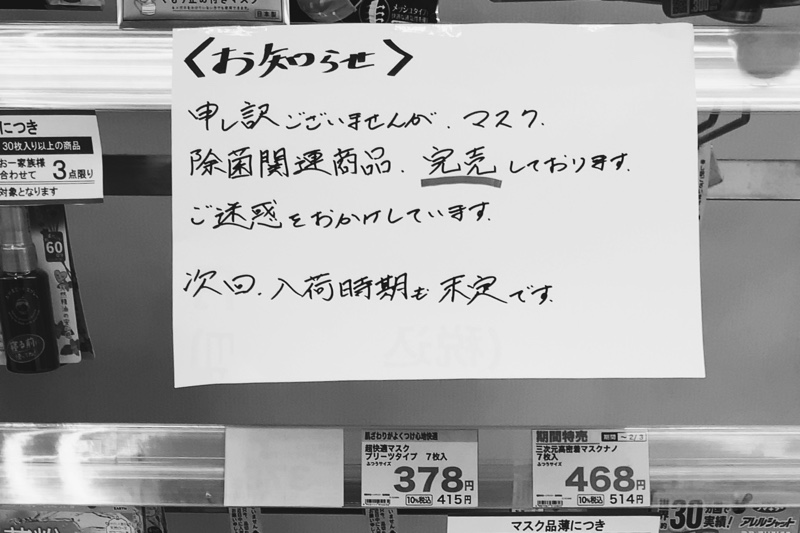 くもり止め付きマスク
日本製
メッシュタイプ
〈お知らせ〉
申し訳ございませんが、マスク、
除菌関連商品、完売しております。
ご迷惑をおかけしています。
次回、入荷時期も未定です。
につき
30枚入り以上の商品
お一家族様
合わせて 3点限り
対象となります
60
肌ざわりがよくつけ心地快適
超快適マスク
プリーツタイプ 7枚入
ふつうサイズ
378円
10%税込 415円
期間特売 期間 ～2/3
三次元高密着マスクナノ
7枚入
ふつうサイズ
468円
10%税込 514円
マスク品薄につき
30万個で
実績!
アレルシャット